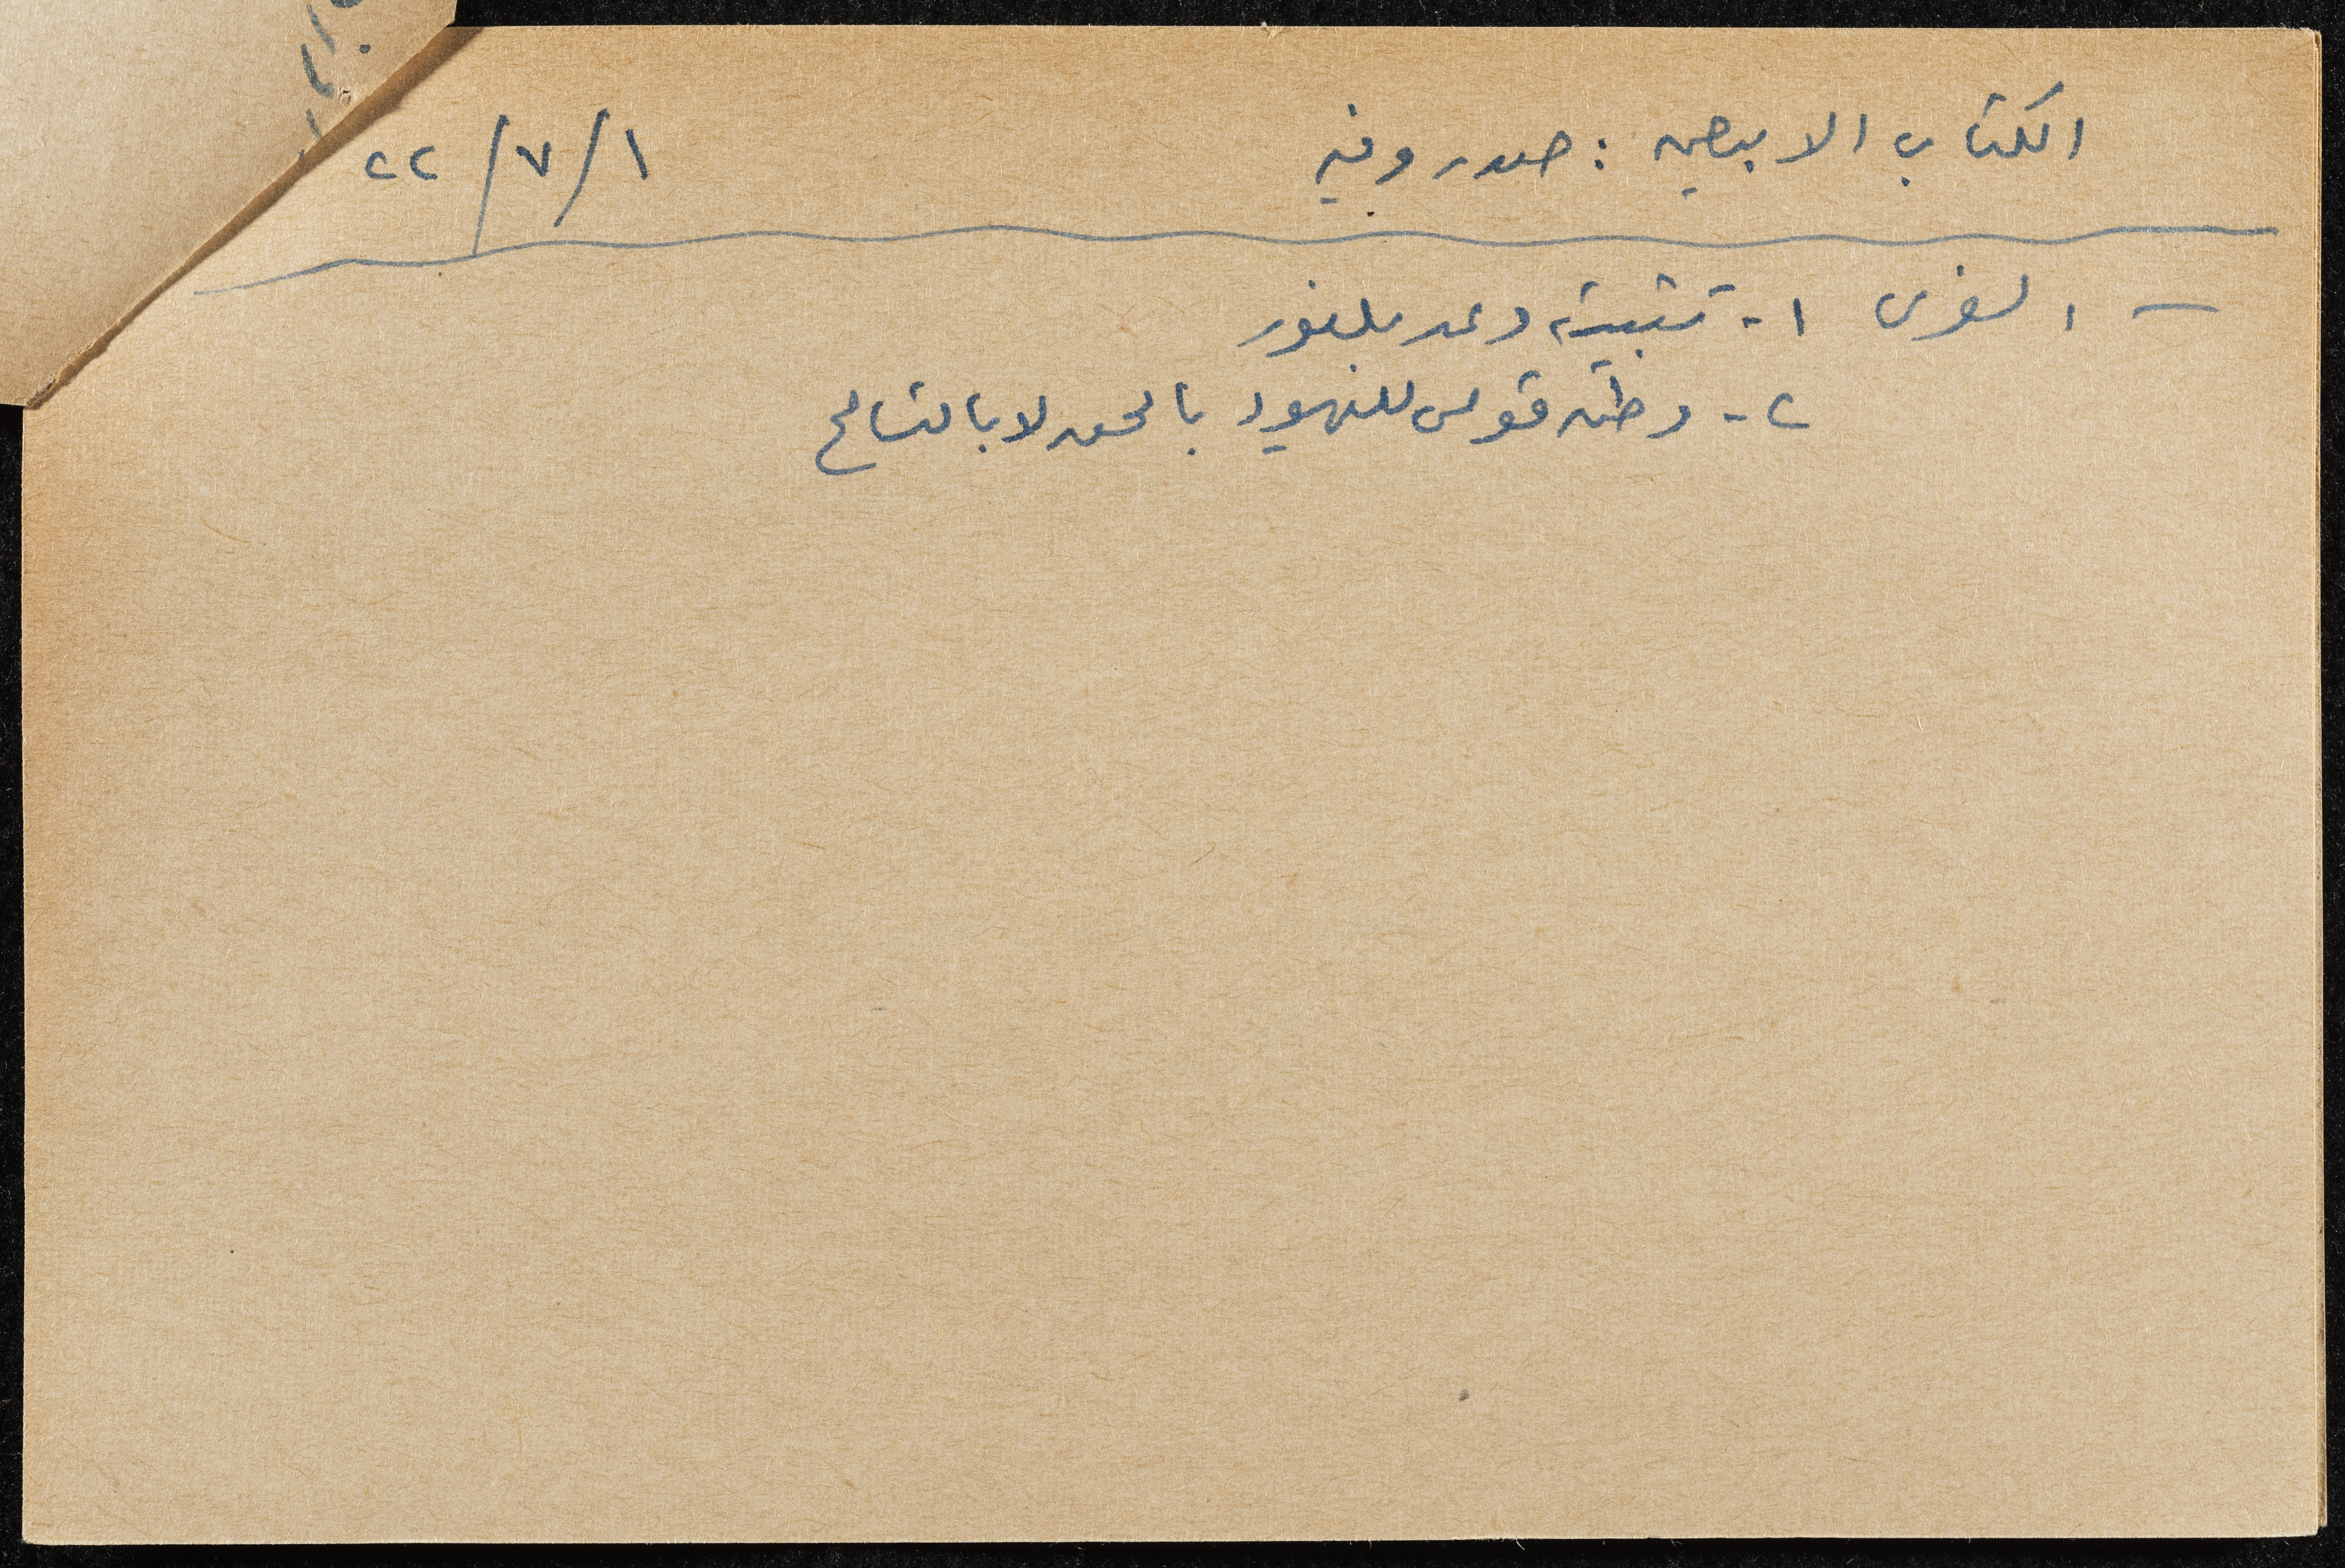 الكتاب الابيض : صدر وفيه ١/٧/٢٢
— الغرض ١- تثبيت وعد بلفور
٢- وطن قومي لليهود بالحق لا بالتسامح